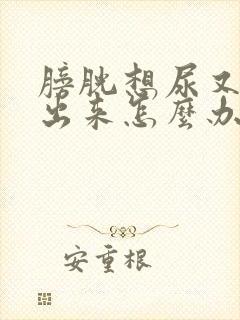 膀胱想尿又
出来怎麼办
安重根